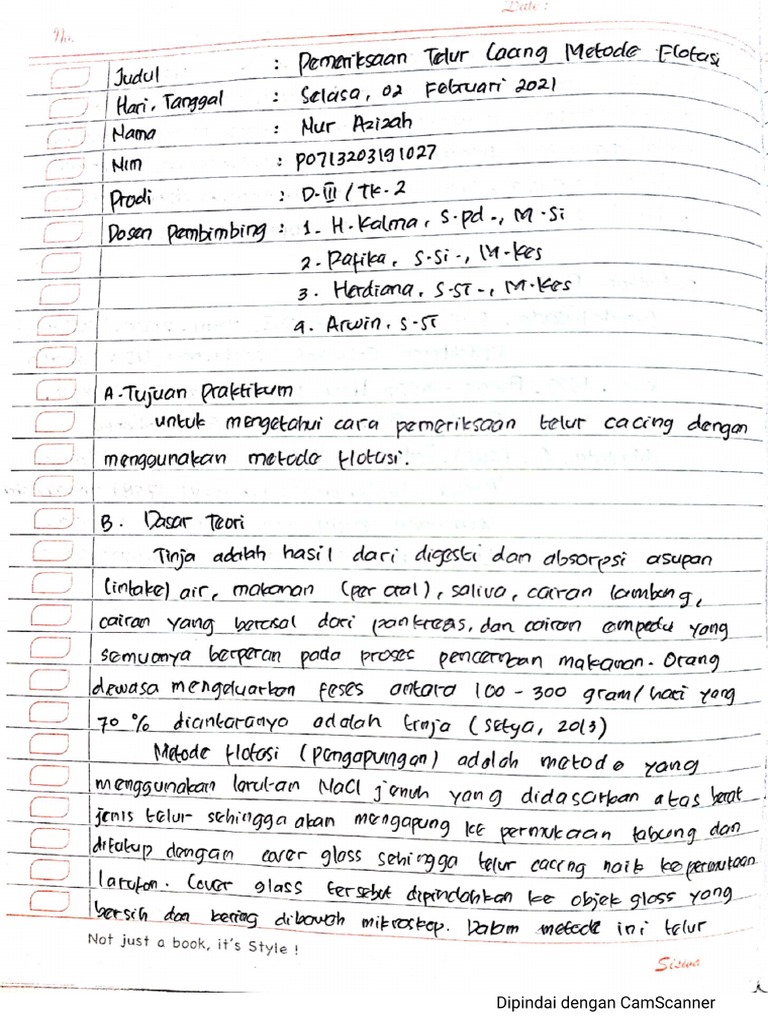 Date :
No.
Judul : Pemeriksaan Telur Cacing Metode Flotasi
Hari, Tanggal : Selasa, 02 Februari 2021
Nama : Nur Azizah
Nim : P0713203191027
Prodi : D-III / TK-2
Dosen Pembimbing : 1. H. Kalma, S.pd., M.Si
2. Rafika, S.Si., M.Kes
3. Herdiana, S.ST., M.Kes
4. Arwin, S.ST
A. Tujuan Praktikum
untuk mengetahui cara pemeriksaan telur cacing dengan
menggunakan metode flotasi.
B. Dasar Teori
Tinja adalah hasil dari digesti dan absorpsi asupan
(intake) air, makanan (per oral), saliva, cairan lambung,
cairan yang berasal dari pankreas, dan cairan empedu yang
semuanya berperan pada proses pencernaan makanan. Orang
dewasa mengeluarkan feses antara 100 - 300 gram/hari yang
70 % diantaranya adalah tinja (Setya, 2013)
Metode flotasi (pengapungan) adalah metode yang
menggunakan larutan NaCl jenuh yang didasarkan atas berat
jenis telur sehingga akan mengapung ke permukaan tabung dan
ditutup dengan cover glass sehingga telur cacing naik ke permukaan
larutan. Cover glass tersebut dipindahkan ke objek glass yang
bersih dan kering dibawah mikroskop. Dalam metode ini telur
Not just a book, it's Style !
Siswa
Dipindai dengan CamScanner